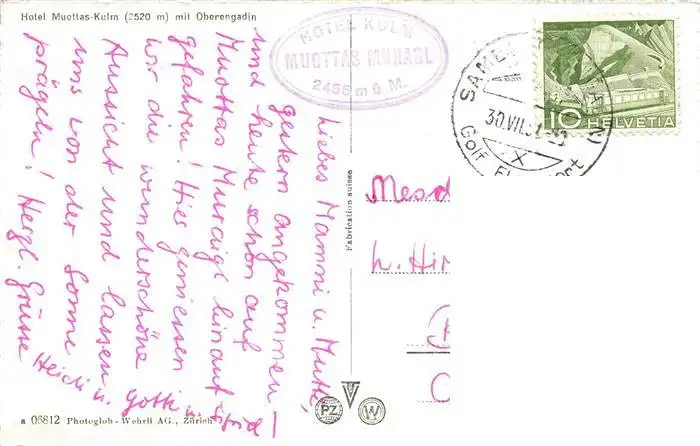 Hotel Muottas-Kulm (2520 m) mit Oberengadin
HOTEL KULM
MUOTTAS MURAGL
2456 m ü. M.
10 HELVETIA
SAME
30.VII.
Golf
Liebes Mammi u. Mutti,
gestern angekommen –
und heute schon auf
Muottas Muraigl hinauf
gefahren! Hier geniessen
wir die wunderschöne
Aussicht und lassen
uns von der Sonne
prägeln! Herzl. Grüsse
Heidi u. Gotti u.
Fabrication suisse
PZ W
a 06812 Photoglob-Wehrli AG., Zürich